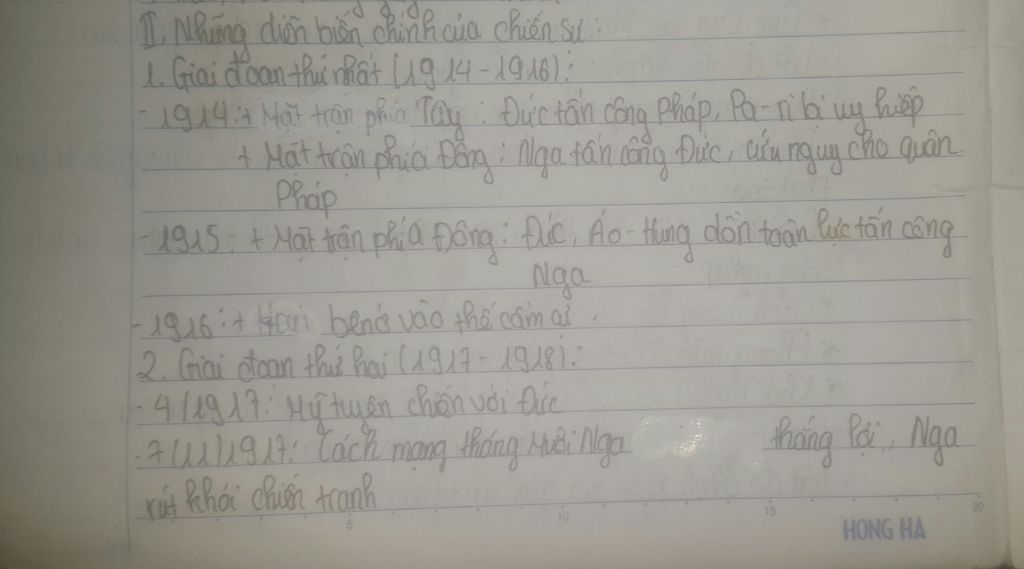 II. Những diễn biến chính của chiến sự:
1. Giai đoạn thứ nhất (1914-1916):
- 1914: + Mặt trận phía Tây: Đức tấn công Pháp, Pa-ri bị uy hiếp
+ Mặt trận phía Đông: Nga tấn công Đức, cứu nguy cho quân
Pháp
- 1915: + Mặt trận phía Đông: Đức, Áo-Hung dồn toàn lực tấn công
Nga
- 1916: + Hai bên ở vào thế cầm cự.
2. Giai đoạn thứ hai (1917-1918):
- 4/1917: Mỹ tuyên chiến với Đức
- 7/11/1917: Cách mạng tháng Mười Nga thắng lợi, Nga
rút khỏi chiến tranh
5 10 15 20
HONG HA